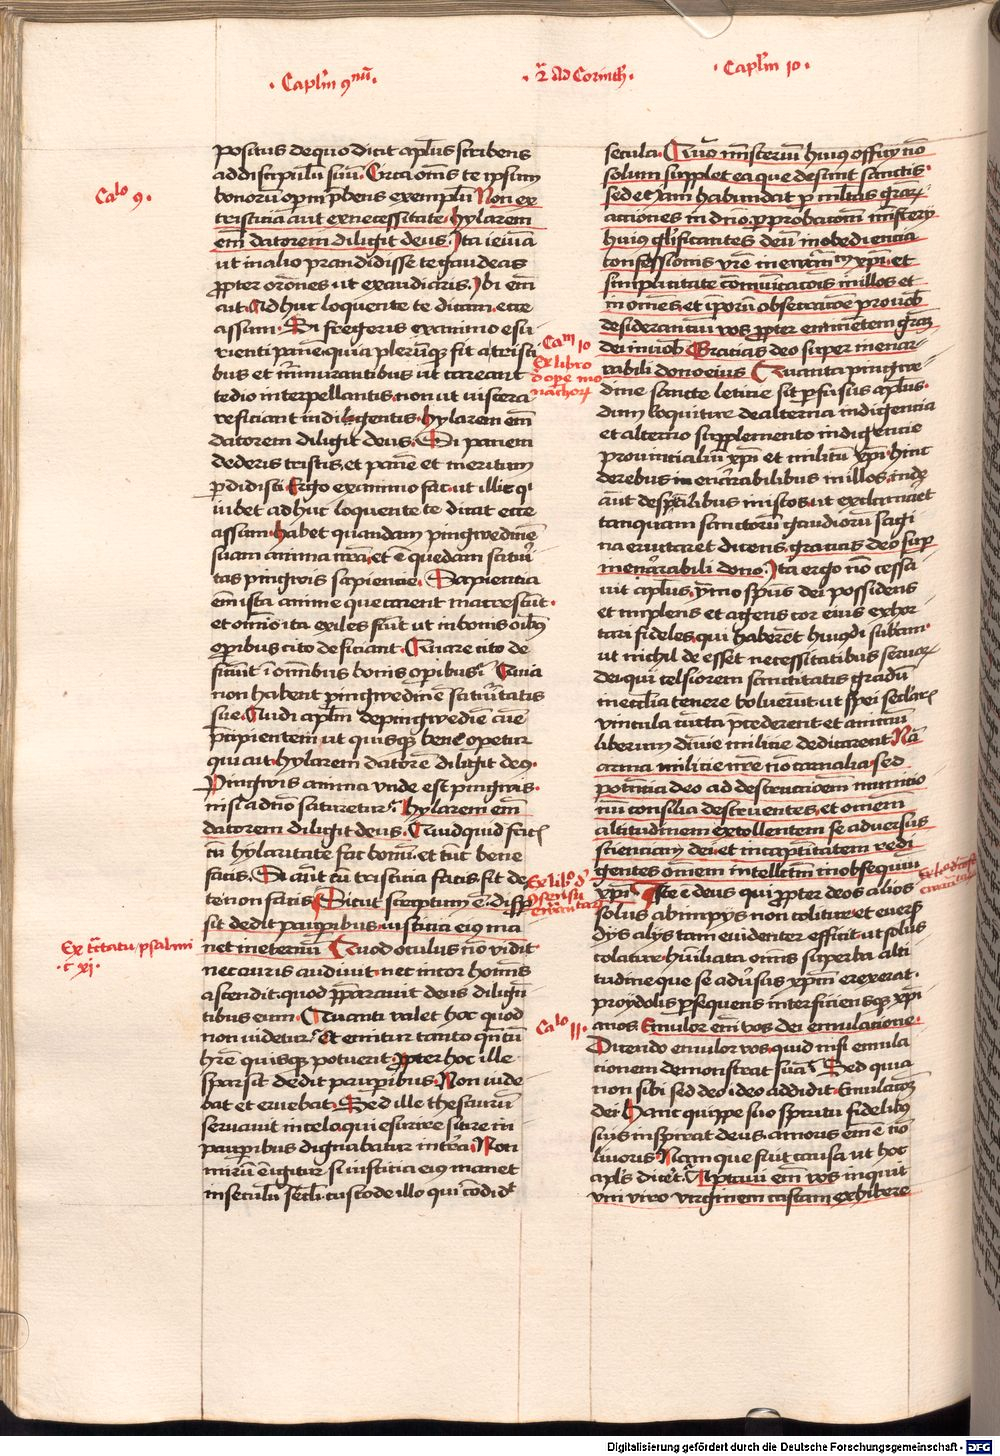 · Caplm 9num ·
· 2a Ad Corinth ·
· Caplm 10 ·
Calo 9.
positus de quo dicit apl̄us scribens
ad discipulū suū. Circa oms̄ te ipsum
bonorū oꝑm p̄bens exemplū Non ex
tristicia aut ex necessitate. hylarem
em̄ datorem diligit deus. Ita ieiuna
ut in alio prandidisse te gaudeas
ꝓpter orōnes ut exaudiaris. Ibi em̄
ait. Adhuc loquente te dicam. ecce
assum. Si fregeris ex animo esu
rienti panē. quia plerūqꝫ fit a tristi
bus et murmurantibus ut careant
tedio interpellantis. non ut viscera
reficiant indigentis. hylarem em̄
datorem diligit deus. Si panem
dederis tristis. et panē et meritum
ꝑdidisti. Ergo ex animo fac. ut ille qi
iubet adhuc loquente te dicat ecce
assum. habet quandam pingwedinē
suam anima nr̄a. et ē quedam saturi
tas pingwis sapiencie. Sapiencia
em̄ ista anime que carent marcescūt.
et omīo ita exiles fiūt ut in bonis oībꝫ
oꝑibus cito deficiant. Quare cito de
ficiūt ī omnibus bonis oꝑibus? Quia
non habent pingwedinē saturitatis
sue. Audi apl̄m de pingwedīe aīe
p̄cipientem ut quisqꝫ bene opetur
qui ait. hylarem datorē diligit deꝰ.
Pingwis anima unde est pingwis.
nisi a dn̄o saturetur? hylarem em̄
datorem diligit deus. Quidquid facis
cū hylaritate fac bonū. et tūc bene
facis. Si aūt cū tristicia facis. fit de
te non facis. Sicut scriptum ē. disꝑ
sit dedit pauꝑibus. iusticia eiꝰ ma
net in eternū Quod oculus nō vidit
nec auris audiuit. nec in cor homīs
ascendit. quod p̄parauit deus diligē
tibus eum. Quanti valet hoc quod
non videtur? Et emitur tanto qntū
hr̄e quisqꝫ potuerit. ꝓpter hoc ille
sparsit dedit pauꝑibus. Non vide
bat et emebat. Sed ille thesaurū
seruauit in celo. qui esurire sitire in
pauꝑibus dignabatur in terra. Non
mirū ē igitur si iusticia eiꝰ manet
in seculū secli. custode illo qui cōdidit
Ex tr̄atatu psalmi
· c xj ·
Cam 10
Ex libro
de ope mo
nachorꝫ
secula. Qm̄ misteriū huius officij nō
solum supplet ea que desunt sanctis.
sed etiam habundat ꝑ multas graꝝ
actiones in dn̄o. ꝑ probacōnem misterij
huius glorificantes deū in obediencia
confessionis vr̄e in ewāᵐ xp̄i. et
simplicitate cōmunicacōis in illos et
in omēs. et ipsorū obsecracōe pro uob
desiderantiū vos ꝓpter eminentem graꝫ
dei in uob Gracias deo super inenar
rabili dono eius Quanta pingwe
dine sancte leticie sit ꝑfusus apl̄us.
dum loquitur de alterna indigencia
et alterno supplemento indigencie
prouincialiū xp̄i et militū xp̄i. hinc
de rebus in carnalibus in illos. inde
aūt de spūalibus in istos. ut exclamaret
tanquam sanctorū gaudiorū sagi
na eructaret dicens. gracias deo sup
inenarrabili dono. Ita ergo nō cessa
uit apl̄us. ymo spūs dei possidens
et implens et agens cor eius exhor
tari fideles. qui haberēt huiꝰdi subam.
ut nichil deesset necessitatibus seruoꝝ
dei. qui celsiorem sanctitatis gradū
in eccl̄ia tenere voluerūt. ut spei seclaris
vincula cūcta p̄cederent. et animū
liberum diuīe milicie dedicarent. Nā
arma milicie nr̄e nō carnalia. sed
potencia deo ad destructiōem municio
nū consilia destruentes. et omēm
altitudinem extollentem se adversus
scienciam dei. et in captitatem redi
gentes omēm intellectū in obsequiū
xp̄i Iste ē deus qui ꝓpter deos alios
solus ab impijs non colitur. et euersis
dijs alijs tam euidenter efficit. ut solus
colatur. hūiliata omīs superba alti
tudine que se adūsus xp̄m erexerat.
pro ydolis ꝑsequens interficiensqꝫ xp̄i
anos Emulor em̄ vos dei emulacione.
Dicendo emulor vos. quid nisi emula
cionem demonstrat suā? Sed quia
non sibi sed deo. ideo addidit. Emulacōe
dei. Hanc quippe suo spiritu fidelibꝫ
suis inspirat deus. amoris em̄ ē nō
liuoris. Nam que fuit causa ut hoc
apls diceret? Aptaui em̄ vos inquit
vni viro virginem castam exhibere
Ex libo de
9sensu
ewāstarꝫ
Calo 11.